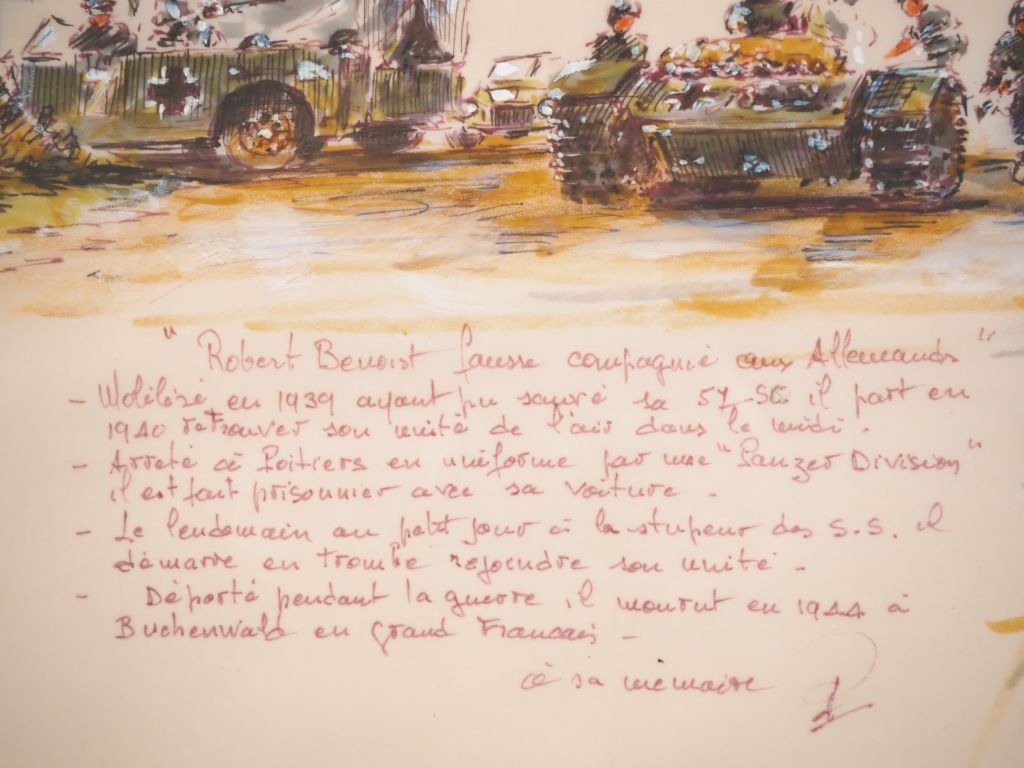 " Robert Benoist fausse compagnie aux Allemands "
- Mobilisé en 1939 ayant pu sauvé sa 57-SC il part en
1940 retrouver son unité de l'air dans le midi .
- Arreté à Poitiers en uniforme par une " Panzer Division "
il est fait prisonnier avec sa voiture .
- Le lendemain au petit jour à la stupeur des S.S. il
démarre en trombe rejoindre son unité .
- Déporté pendant la guerre , il mourut en 1944 à
Buchenwald en grand Francais -
à sa mémoire